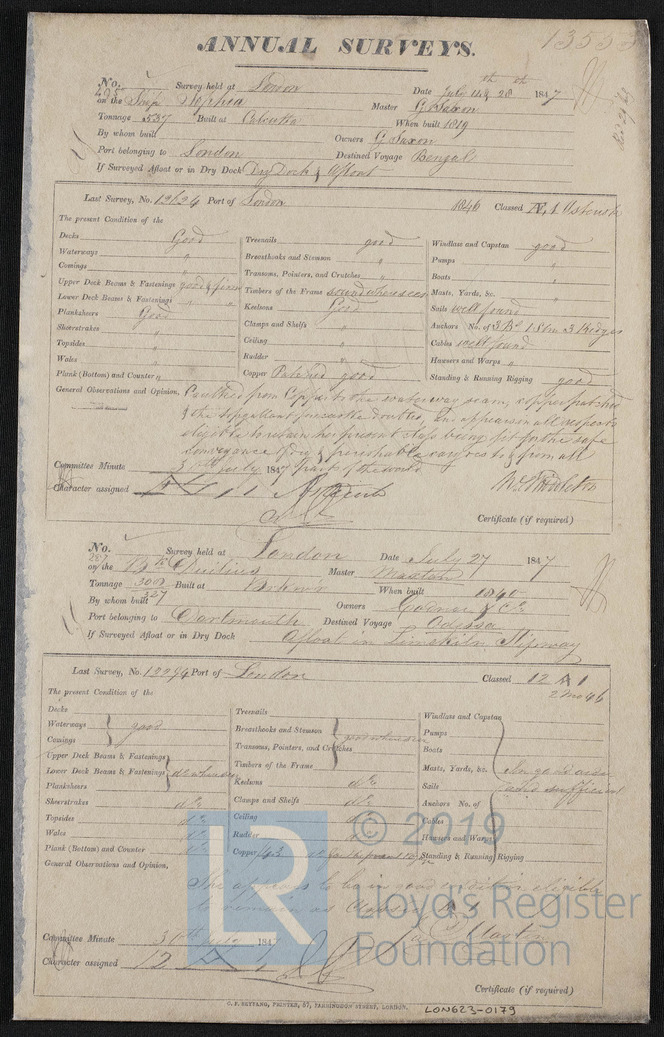 ANNUAL SURVEYS.
No. 495 Survey held at London Date July 14th & 28th 1847
on the Ship Sophia Master G Saxon
Tonnage 537 Built at Calcutta When built 1819
By whom built Owners G Saxon
Port belonging to London Destined Voyage Bengal
If Surveyed Afloat or in Dry Dock Dry Dock & Afloat
Last Survey, No. 12624 Port of London 1846 Classed Æ 1
The present Condition of the
Decks Good
Waterways "
Comings "
Upper Deck Beams & Fastenings good & firm
Lower Deck Beams & Fastenings " "
Planksheers Good
Sheerstrakes "
Topsides "
Wales "
Plank (Bottom) and Counter "
Treenails good
Breasthooks and Stemson "
Transoms, Pointers, and Crutches "
Timbers of the Frame sound where seen
Keelsons Good
Clamps and Shelfs "
Ceiling "
Rudder "
Copper good
Windlass and Capstan good
Pumps "
Boats "
Masts, Yards, &c. "
Sails well found
Anchors No. of 3 Br 1 Strm 3 Kedges
Cables well found
Hawsers and Warps "
Standing & Running Rigging good
General Observations and Opinion, Caulked from Copper to the waterway seam, copper patched
& the topgallant forecastle doubled, and appears in all respects
eligible to retain her present class being fit for the safe
conveyance of dry & perishable cargoes to & from all
Committee Minute 30th July 1847 parts of the world
Character assigned Æ 1
Certificate (if required)
No. 287 Survey held at London Date July 27 1847
on the Bk Master
Tonnage 300 327 Built at When built 1840
By whom built Owners & Co
Port belonging to Dartmouth Destined Voyage Odessa
If Surveyed Afloat or in Dry Dock Afloat in Limekiln Slipway
Last Survey, No. 13294 Port of London Classed 12 A 1
2 mo 46
The present Condition of the
Decks
Waterways good
Comings
Upper Deck Beams & Fastenings
Lower Deck Beams & Fastenings do where seen
Planksheers
Sheerstrakes do
Topsides do
Wales do
Plank (Bottom) and Counter do
Treenails
Breasthooks and Stemson good where seen
Transoms, Pointers, and Crutches
Timbers of the Frame
Keelsons do
Clamps and Shelfs do
Ceiling do
Rudder do
Copper
Windlass and Capstan
Pumps
Boats
Masts, Yards, &c. In good order
Sails and sufficient
Anchors No. of
Cables
Hawsers and Warps
Standing & Running Rigging
General Observations and Opinion,
She appears to be in good condition eligible
to remain as Classed A 1
Committee Minute 30th July 1847
Character assigned 12 A 1
Certificate (if required)
C. F. SEYFANG, PRINTER, 57, FARRINGDON STREET, LONDON.
LON623-0179
LR
© 2019
Lloyd's Register
Foundation